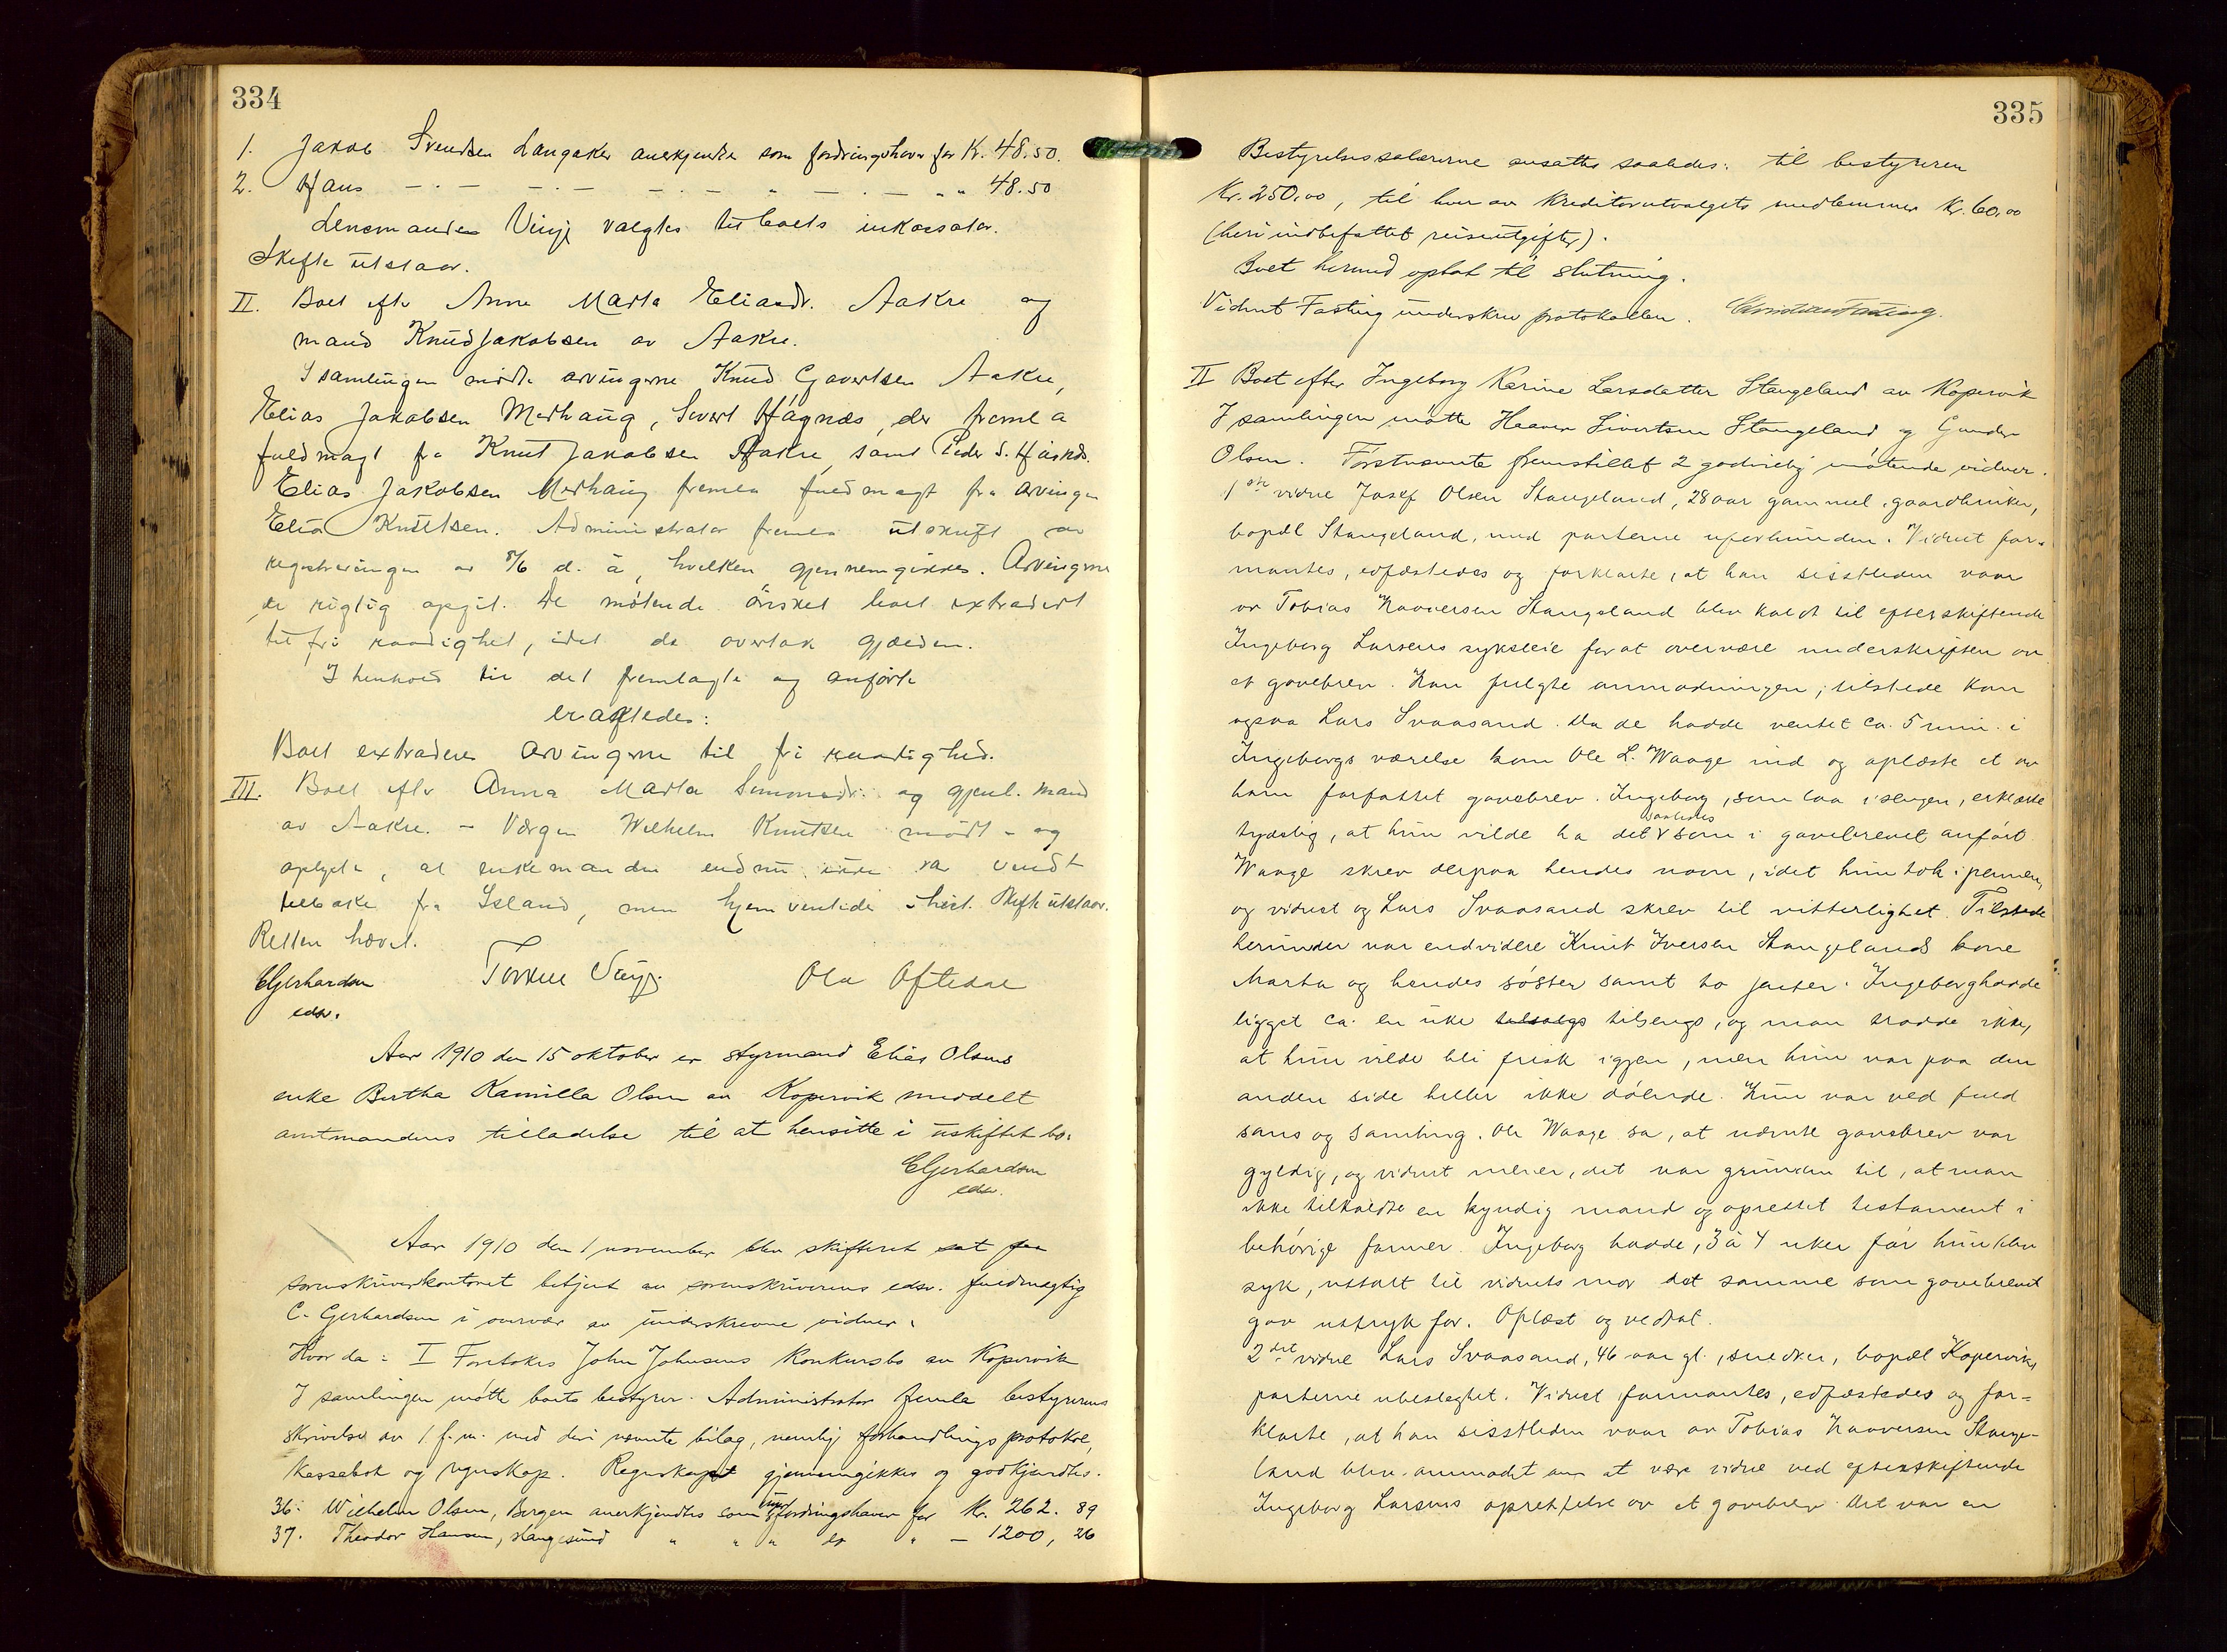 334
1. Jakob Svendsen Langaker anerkjendte som fordringshaver for Kr. 48.50.
2. Hans — . — — . — — . — " — . — " " 48.50
Lensmanden Vinje valgtes til boets inkassator.
Skifte utstaar.
II. Boet eftr Anne Marta Eliasdr. Aakre og
mand Knud Jakobsen av Aakre.
I samlingen mødte arvingerne Knud Govertsen Aakre,
Elias Jakobsen Medhaug, Sivert Høgnæs, der fremla
fuldmagt fra Knut Jakobsen Aakre, samt Peder S.
Elias Jakobsen Medhaug fremla fuldmagt fra arvingen
Elia Knutsen. Administrator fremla utskrift av
registreringen av 8/6 d. å, hvilken gjennemgikkes. Arvingerne
er rigtig opgit. De møtende ønsket boet extradert
til fri raadighet, idet de overtok gjælden.
I henhold til det fremlagte og anførte
eragtedes:
Boet extraderes arvingerne til fri raadighed.
III. Boet eftr Anna Marta Simonsdr. og gjenl. mand
av Aakre. – Værgen Wilhelm Knutsen mødt – og
oplyste, at enkemanden endnu ikke var vendt
tilbake fra Island, men hjemventede i høst. Skifte utstaar.
Retten hævet.
CGerhardsen
edsv.
Torkel Vinje
Ola Oftedal
Aar 1910 den 15 oktober er styrmand Elias Olsens
enke Bertha Kamilla Olsen av Kopervik meddelt
amtmandens tilladelse til at hensitte i uskiftet bo.
CGerhardsen
edsv.
Aar 1910 den 1 november blev skifteret sat paa
sorenskriverkontoret betjent av sorenskriverens edsv. fuldmægtig
C. Gerhardsen i overvær av underskrevne vidner.
Hvor da: I Foretokes John Johnsens konkursbo av Kopervik
I samlingen møtte boets bestyrer. Administrator fremla bestyrerens
skrivelse av 1 f.m. med deri nævnte bilag, nemlig forhandlingsprotokol,
kassebok og regnskap. Regnskapet gjennemgikkes og godkjendtes.
36. Wilhelm Olsen, Bergen anerkjendtes som fordringshaver for Kr. 262. 89
37. Theodor Hansen, Haugesund " " " " — 1200, 26
335
Bestyrelsessalærerne ansattes saaledes: til bestyreren
Kr. 250,00, til hver av kreditorutvalgets medlemmer Kr. 60,00
(heri indbefattet reiseutgifter).
Boet hermed optat til slutning.
Vidnet Fasting underskrev protokollen. Christian Fasting.
II Boet efter Ingeborg Karine Larsdatter Stangeland av Kopervik
I samlingen møtte Haaver Sivertsen Stangeland og Gunder
Olsen. Førstnævnte fremstillet 2 godvillig møtende vidner.
1ste vidne Josef Olsen Stangeland, 28 aar gammel, gaardbruker,
bopæl Stangeland, med parterne uforbunden. Vidnet for-
mantes, edfæstedes og forklarte, at han sisstleden vaar
av Tobias Haaversen Stangeland blev kaldt til efterskiftende
Ingeborg Larsens sykeleie for at overvære underskriften av
et gavebrev. Han fulgte anmodningen; tilstede kom
ogsaa Lars Svaasand. Da de hadde ventet ca. 5 min. i
Ingeborgs værelse kom Ole L. Waage ind og oplæste et av
ham forfattet gavebrev. Ingeborg, som laa i sengen, erklærte
tydelig, at hun vilde ha det saaledes som i gavebrevet anført.
Waage skrev derpaa hendes navn, idet hun tok i pennen,
og vidnet og Lars Svaasand skrev til vitterlighet. Tilstede
herunder var endvidere Knut Iversen Stangelands kone
Marta og hendes søster samt to jenter. Ingeborg hadde
ligget ca. en uke tilsengs, og man trodde ikke,
at hun vilde bli frisk igjen, men hun var paa den
anden side heller ikke døende. Hun var ved fuld
sans og samling. Ole Waage sa, at nævnte gavebrev var
gyldig, og vidnet mener, det var grunden til, at man
ikke tilkaldte en kyndig mand og oprettet testament i
behørige former. Ingeborg hadde, 3 à 4 uker før hun blev
syk, uttalt til vidnets mor det samme som gavebrevet
gav uttryk for. Oplæst og vedtat.
2det vidne Lars Svaasand, 46 aar gl., snedker, bopæl Kopervik,
parterne ubeslegtet. Vidnet formantes, edfæstedes og for-
klarte, at han sisstleden vaar av Tobias Haaversen Stange-
land blev anmodet om at være vidne ved efterskiftende
Ingeborg Larsens oprettelse av et gavebrev. Det var en